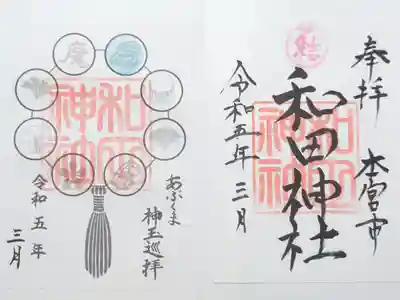 奉拝 本宮市
結
和田神社
和田神社
令和五年三月
和田神社
あぶくま
神玉巡拝
令和五年
三月